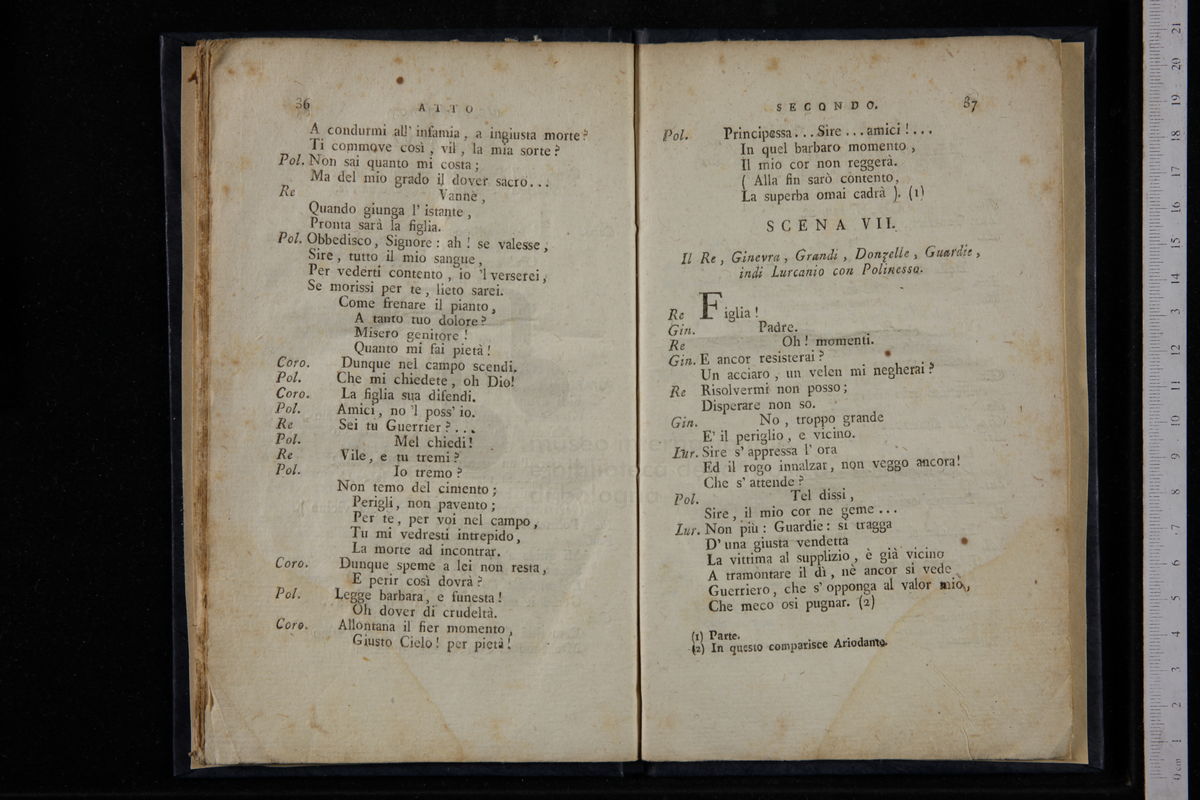 36
ATTO
A condurmi all' infamia, a ingiusta morte?
Ti commove così, vil, la mia sorte?
Pol. Non sai quanto mi costa;
Ma del mio grado il dover sacro...
Re Vanne,
Quando giunga l' istante,
Pronta sarà la figlia.
Pol. Obbedisco, Signore: ah! se valesse,
Sire, tutto il mio sangue,
Per vederti contento, io 'l verserei,
Se morissi per te, lieto sarei.
Come frenare il pianto,
A tanto tuo dolore?
Misero genitore!
Quanto mi fai pietà!
Coro. Dunque nel campo scendi.
Pol. Che mi chiedete, oh Dio!
Coro. La figlia sua difendi.
Pol. Amici, no 'l poss' io.
Re Sei tu Guerrier?...
Pol. Mel chiedi!
Re Vile, e tu tremi?
Pol. Io tremo?
Non temo del cimento;
Perigli, non pavento;
Per te, per voi nel campo,
Tu mi vedresti intrepido,
La morte ad incontrar.
Coro. Dunque speme a lei non resta,
E perir così dovrà?
Pol. Legge barbara, e funesta!
Oh dover di crudeltà.
Coro. Allontana il fier momento,
Giusto Cielo! per pietà!
SECONDO.
37
Pol. Principessa...Sire...amici!...
In quel barbaro momento,
Il mio cor non reggerà.
( Alla fin sarò contento,
La superba omai cadrà ). (1)
SCENA VII.
Il Re, Ginevra, Grandi, Donzelle, Guardie,
indi Lurcanio con Polinesso.
Re Figlia!
Gin. Padre.
Re Oh! momenti.
Gin. E ancor resisterai?
Un acciaro, un velen mi negherai?
Re Risolvermi non posso;
Disperare non so.
Gin. No, troppo grande
E' il periglio, e vicino.
Lur. Sire s' appressa l' ora
Ed il rogo innalzar, non veggo ancora!
Che s' attende?
Pol. Tel dissi,
Sire, il mio cor ne geme...
Lur. Non più: Guardie: si tragga
D' una giusta vendetta
La vittima al supplizio, è già vicino
A tramontare il dì, nè ancor si vede
Guerriero, che s' opponga al valor mio,
Che meco osi pugnar. (2)
(1) Parte.
(2) In questo comparisce Ariodante.